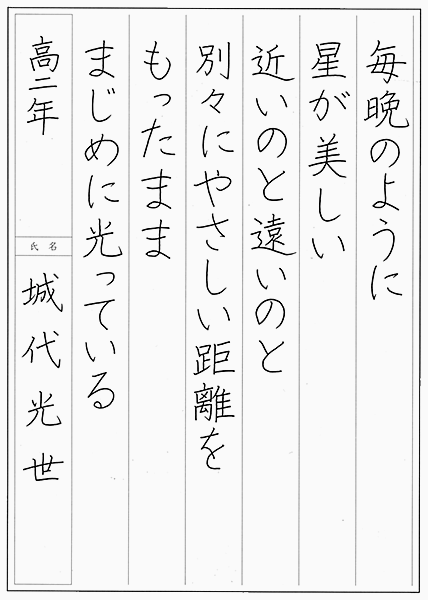 毎晩のように
星が美しい
近いのと遠いのと
別々にやさしい距離を
もったまま
まじめに光っている
高二年
氏名
城代光世